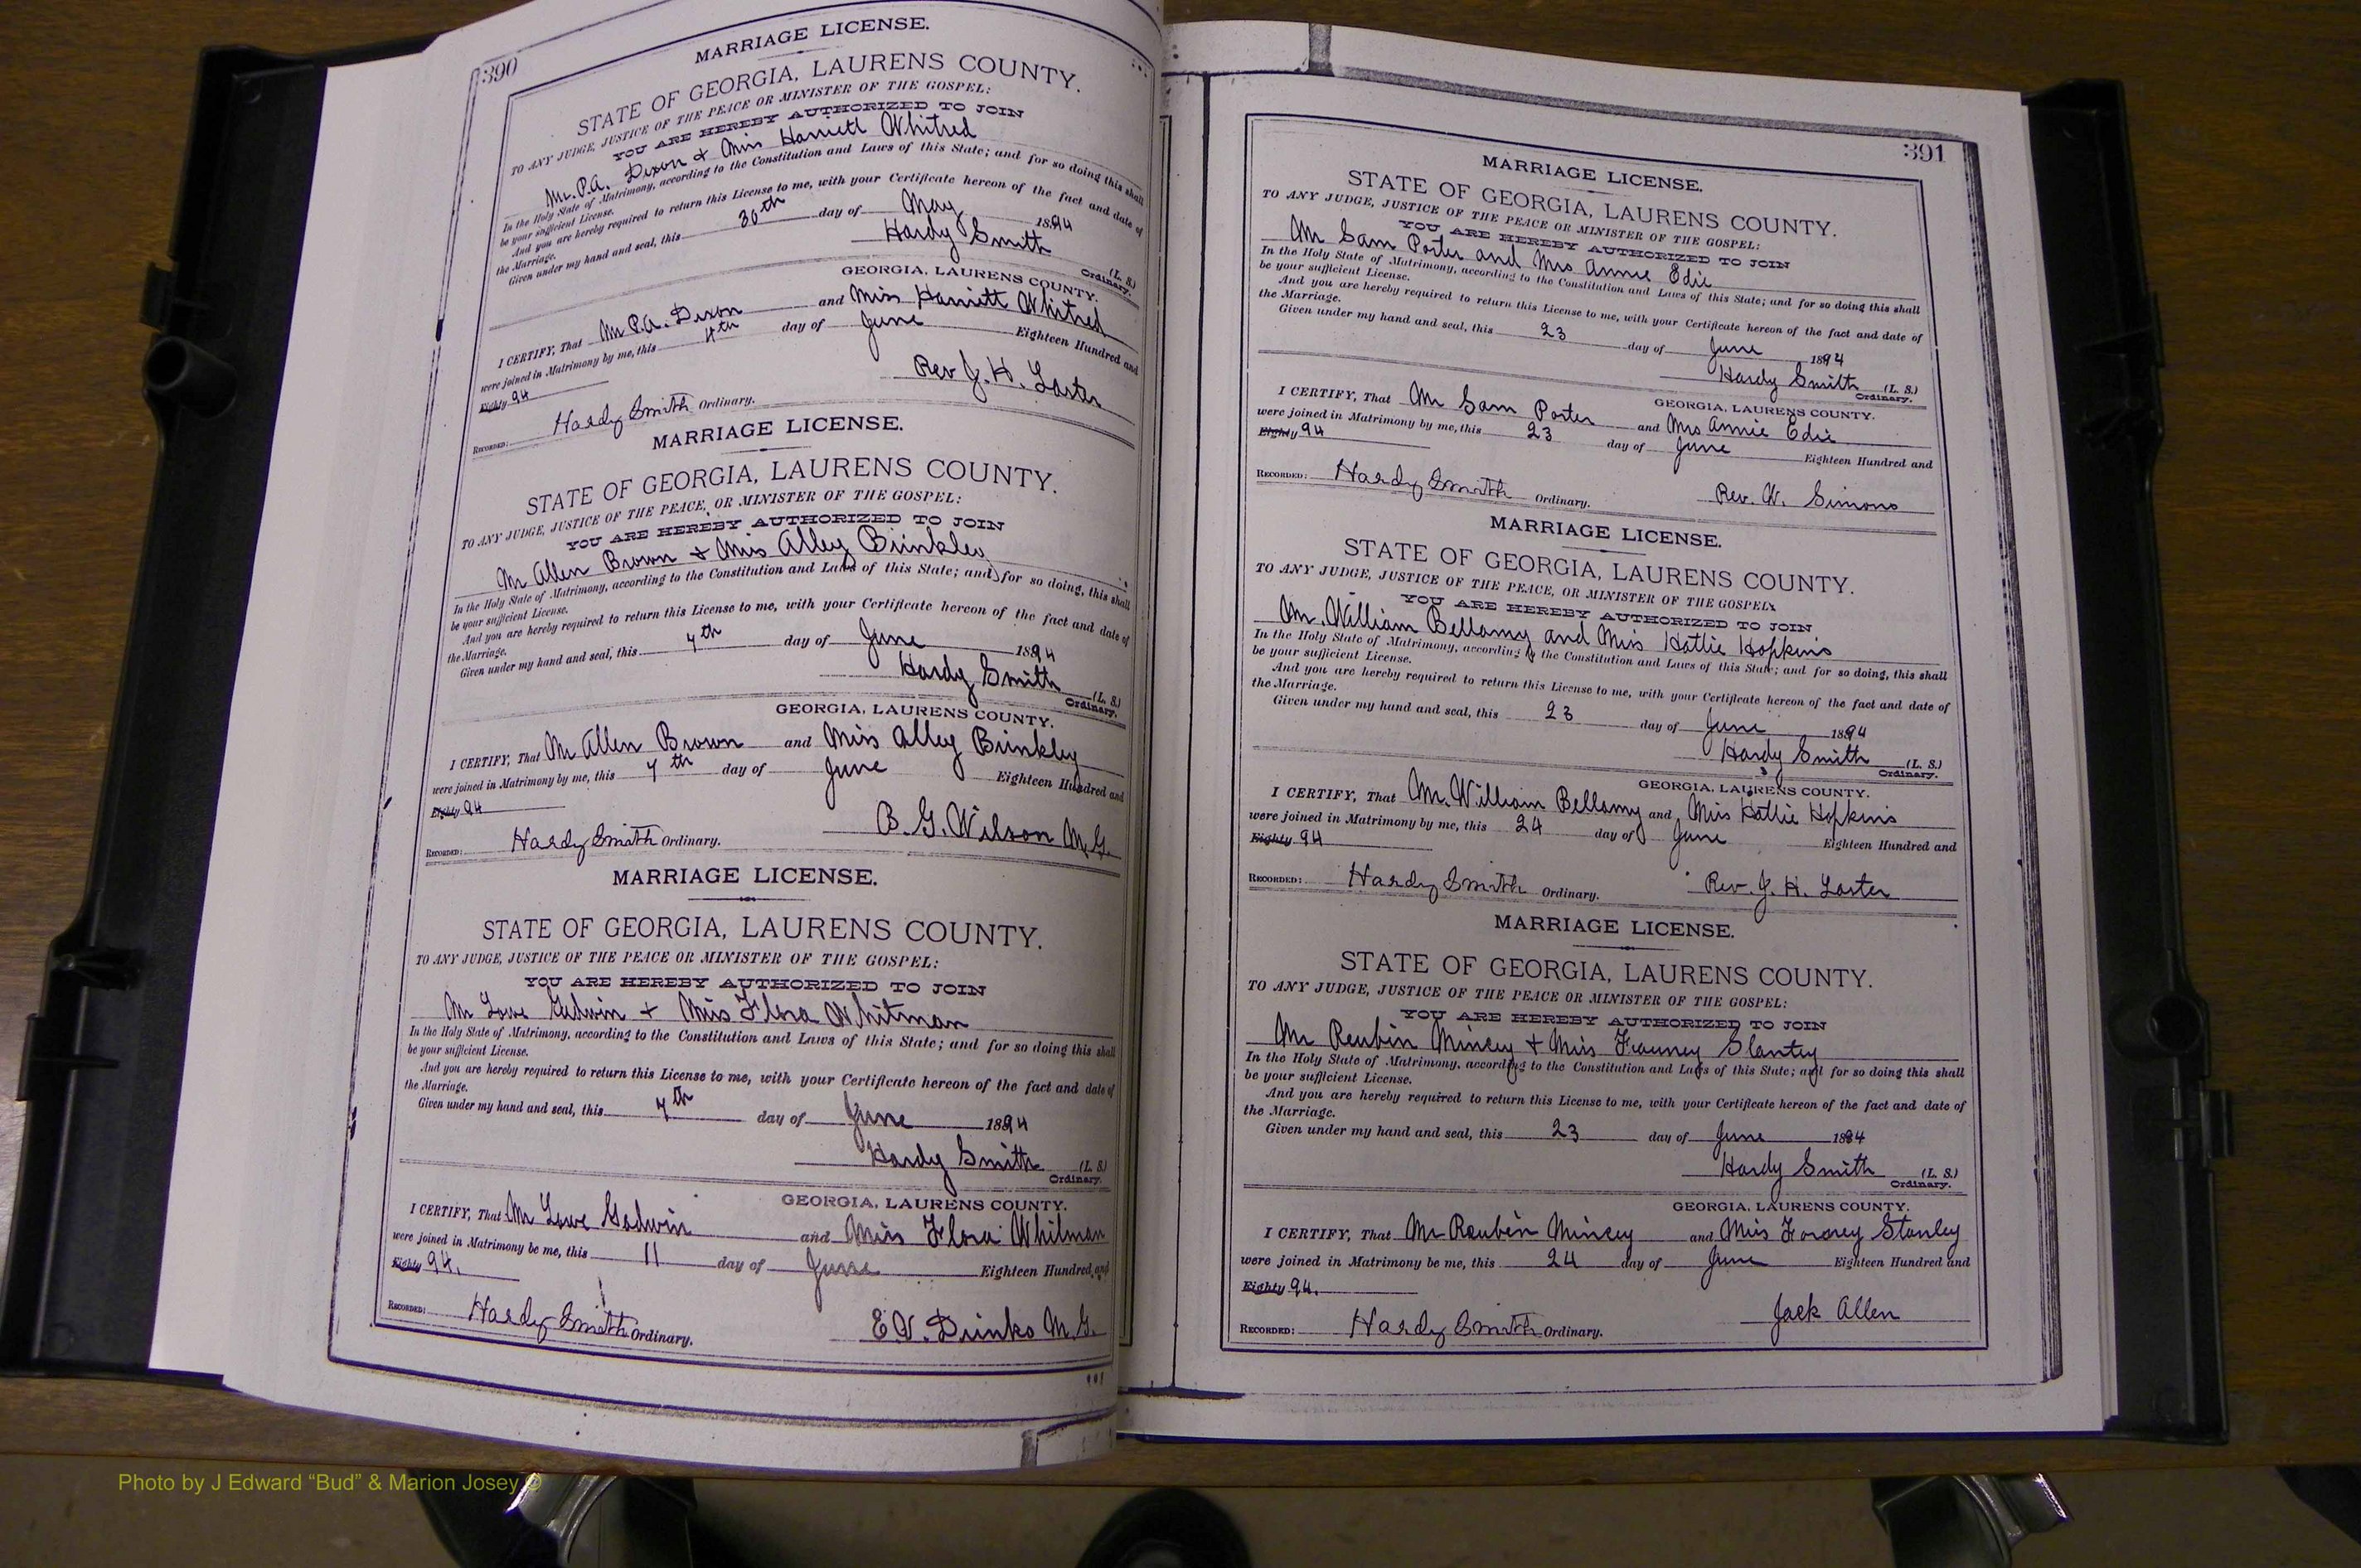 390
MARRIAGE LICENSE.
STATE OF GEORGIA, LAURENS COUNTY.
TO ANY JUDGE, JUSTICE OF THE PEACE OR MINISTER OF THE GOSPEL:
YOU ARE HEREBY AUTHORIZED TO JOIN
Mr. P.A. Dixon & Miss Harriett Whitred
In the Holy State of Matrimony, according to the Constitution and Laws of this State; and for so doing this shall
be your sufficient License.
And you are hereby required to return this License to me, with your Certificate hereon of the fact and date of
the Marriage.
Given under my hand and seal, this 30th day of May 1894
Hardy Smith (L. S.)
Ordinary.
GEORGIA, LAURENS COUNTY.
I CERTIFY, That Mr P.A. Dixon and Miss Harriett Whitred
were joined in Matrimony by me, this 4th day of June Eighteen Hundred and
Eighty 94
Rev J. H. Laster
RECORDED: Hardy Smith Ordinary.
MARRIAGE LICENSE.
STATE OF GEORGIA, LAURENS COUNTY.
TO ANY JUDGE, JUSTICE OF THE PEACE, OR MINISTER OF THE GOSPEL:
YOU ARE HEREBY AUTHORIZED TO JOIN
Mr Allen Brown & Miss Alley Brinkley
In the Holy State of Matrimony, according to the Constitution and Laws of this State; and for so doing, this shall
be your sufficient License.
And you are hereby required to return this License to me, with your Certificate hereon of the fact and date of
the Marriage.
Given under my hand and seal, this 7th day of June 1894
Hardy Smith (L. S.)
Ordinary.
GEORGIA, LAURENS COUNTY.
I CERTIFY, That Mr Allen Brown and Miss Alley Brinkley
were joined in Matrimony by me, this 7th day of June Eighteen Hundred and
Eighty 94
B. G. Wilson M.G.
RECORDED: Hardy Smith Ordinary.
MARRIAGE LICENSE.
STATE OF GEORGIA, LAURENS COUNTY.
TO ANY JUDGE, JUSTICE OF THE PEACE OR MINISTER OF THE GOSPEL:
YOU ARE HEREBY AUTHORIZED TO JOIN
Mr Lowe Godwin & Miss Flora Whitman
In the Holy State of Matrimony, according to the Constitution and Laws of this State; and for so doing this shall
be your sufficient License.
And you are hereby required to return this License to me, with your Certificate hereon of the fact and date of
the Marriage.
Given under my hand and seal, this 7th day of June 1894
Hardy Smith (L. S.)
Ordinary.
GEORGIA, LAURENS COUNTY.
I CERTIFY, That Mr Lowe Godwin and Miss Flora Whitman
were joined in Matrimony be me, this 11 day of June Eighteen Hundred and
Eighty 94.
E V. Drinks M.G.
RECORDED: Hardy Smith Ordinary.
391
MARRIAGE LICENSE.
STATE OF GEORGIA, LAURENS COUNTY.
TO ANY JUDGE, JUSTICE OF THE PEACE OR MINISTER OF THE GOSPEL:
YOU ARE HEREBY AUTHORIZED TO JOIN
Mr Sam Porter and Mrs Annie Edie
In the Holy State of Matrimony, according to the Constitution and Laws of this State; and for so doing this shall
be your sufficient License.
And you are hereby required to return this License to me, with your Certificate hereon of the fact and date of
the Marriage.
Given under my hand and seal, this 23 day of June 1894
Hardy Smith (L. S.)
Ordinary.
GEORGIA, LAURENS COUNTY.
I CERTIFY, That Mr Sam Porter and Mrs Annie Edie
were joined in Matrimony by me, this 23 day of June Eighteen Hundred and
Eighty 94
RECORDED: Hardy Smith Ordinary. Rev. W. Simons
MARRIAGE LICENSE.
STATE OF GEORGIA, LAURENS COUNTY.
TO ANY JUDGE, JUSTICE OF THE PEACE, OR MINISTER OF THE GOSPEL:
YOU ARE HEREBY AUTHORIZED TO JOIN
Mr. William Bellamy and Miss Hattie Hopkins
In the Holy State of Matrimony, according to the Constitution and Laws of this State; and for so doing, this shall
be your sufficient License.
And you are hereby required to return this License to me, with your Certificate hereon of the fact and date of
the Marriage.
Given under my hand and seal, this 23 day of June 1894
Hardy Smith (L. S.)
Ordinary.
GEORGIA, LAURENS COUNTY.
I CERTIFY, That Mr. William Bellamy and Miss Hattie Hopkins
were joined in Matrimony by me, this 24 day of June Eighteen Hundred and
Eighty 94
RECORDED: Hardy Smith Ordinary. Rev. J. H. Laster
MARRIAGE LICENSE.
STATE OF GEORGIA, LAURENS COUNTY.
TO ANY JUDGE, JUSTICE OF THE PEACE OR MINISTER OF THE GOSPEL:
YOU ARE HEREBY AUTHORIZED TO JOIN
Mr Reubin Mincey & Miss Slantey
In the Holy State of Matrimony, according to the Constitution and Laws of this State; and for so doing this shall
be your sufficient License.
And you are hereby required to return this License to me, with your Certificate hereon of the fact and date of
the Marriage.
Given under my hand and seal, this 23 day of June 1894
Hardy Smith (L. S.)
Ordinary.
GEORGIA, LAURENS COUNTY.
I CERTIFY, That Mr Reubin Mincey and Miss Stanley
were joined in Matrimony be me, this 24 day of June Eighteen Hundred and
Eighty 94.
Jack Allen
RECORDED: Hardy Smith Ordinary.
Photo by J Edward “Bud” & Marion Josey ©